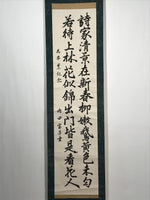 詩家清景在新春柳嫩鵞黄色未匀
若待上林花似錦出門皆是看花人